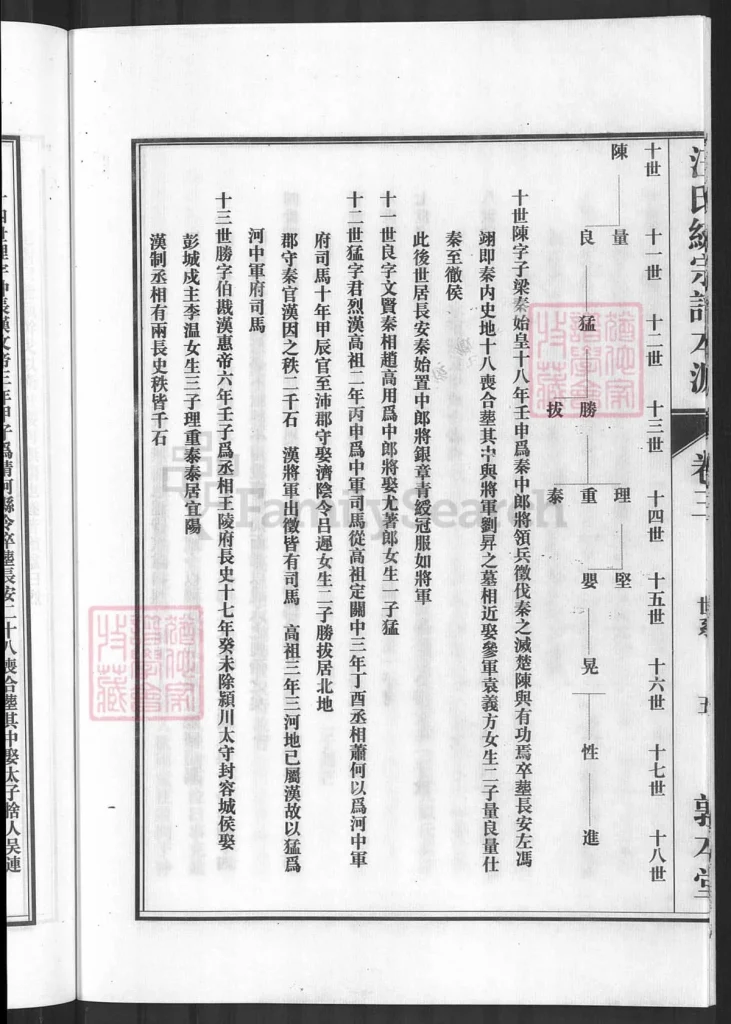 汪氏統宗譜
卷三
世系
五
敦本堂
十世 十一世 十二世 十三世 十四世 十五世 十六世 十七世 十八世
陳 量 理 堅
良 猛 勝 重 嬰 晃 性 進
拔 泰
十世陳字子梁秦始皇十八年壬申爲秦中郎將領兵徵伐秦之滅楚陳與有功焉卒塟長安左馮
翊即秦内史地十八喪合塟其中與將軍劉昇之墓相近娶參軍袁義方女生二子量良量仕
秦至徹侯
此後世居長安秦始置中郎將銀章青綬冠服如將軍
十一世良字文賢秦相趙高用爲中郎將娶尤著郎女生一子猛
十二世猛字君烈漢高祖二年丙申爲中軍司馬從高祖定關中三年丁酉丞相蕭何以爲河中軍
府司馬十年甲辰官至沛郡守娶濟陰令吕遲女生二子勝拔居北地
郡守秦官漢因之秩二千石 漢將軍出徵皆有司馬 高祖三年三河地已屬漢故以猛爲
河中軍府司馬
十三世勝字伯戡漢惠帝六年壬子爲丞相王陵府長史十七年癸未除潁川太守封容城侯娶
彭城戍主李温女生三子理重泰泰居宜陽
漢制丞相有兩長史秩皆千石
十四世理字中長漢文帝三年甲子爲清河縣令卒塟長安二十八喪合塟其中娶太子舍人吴連
FamilySearch